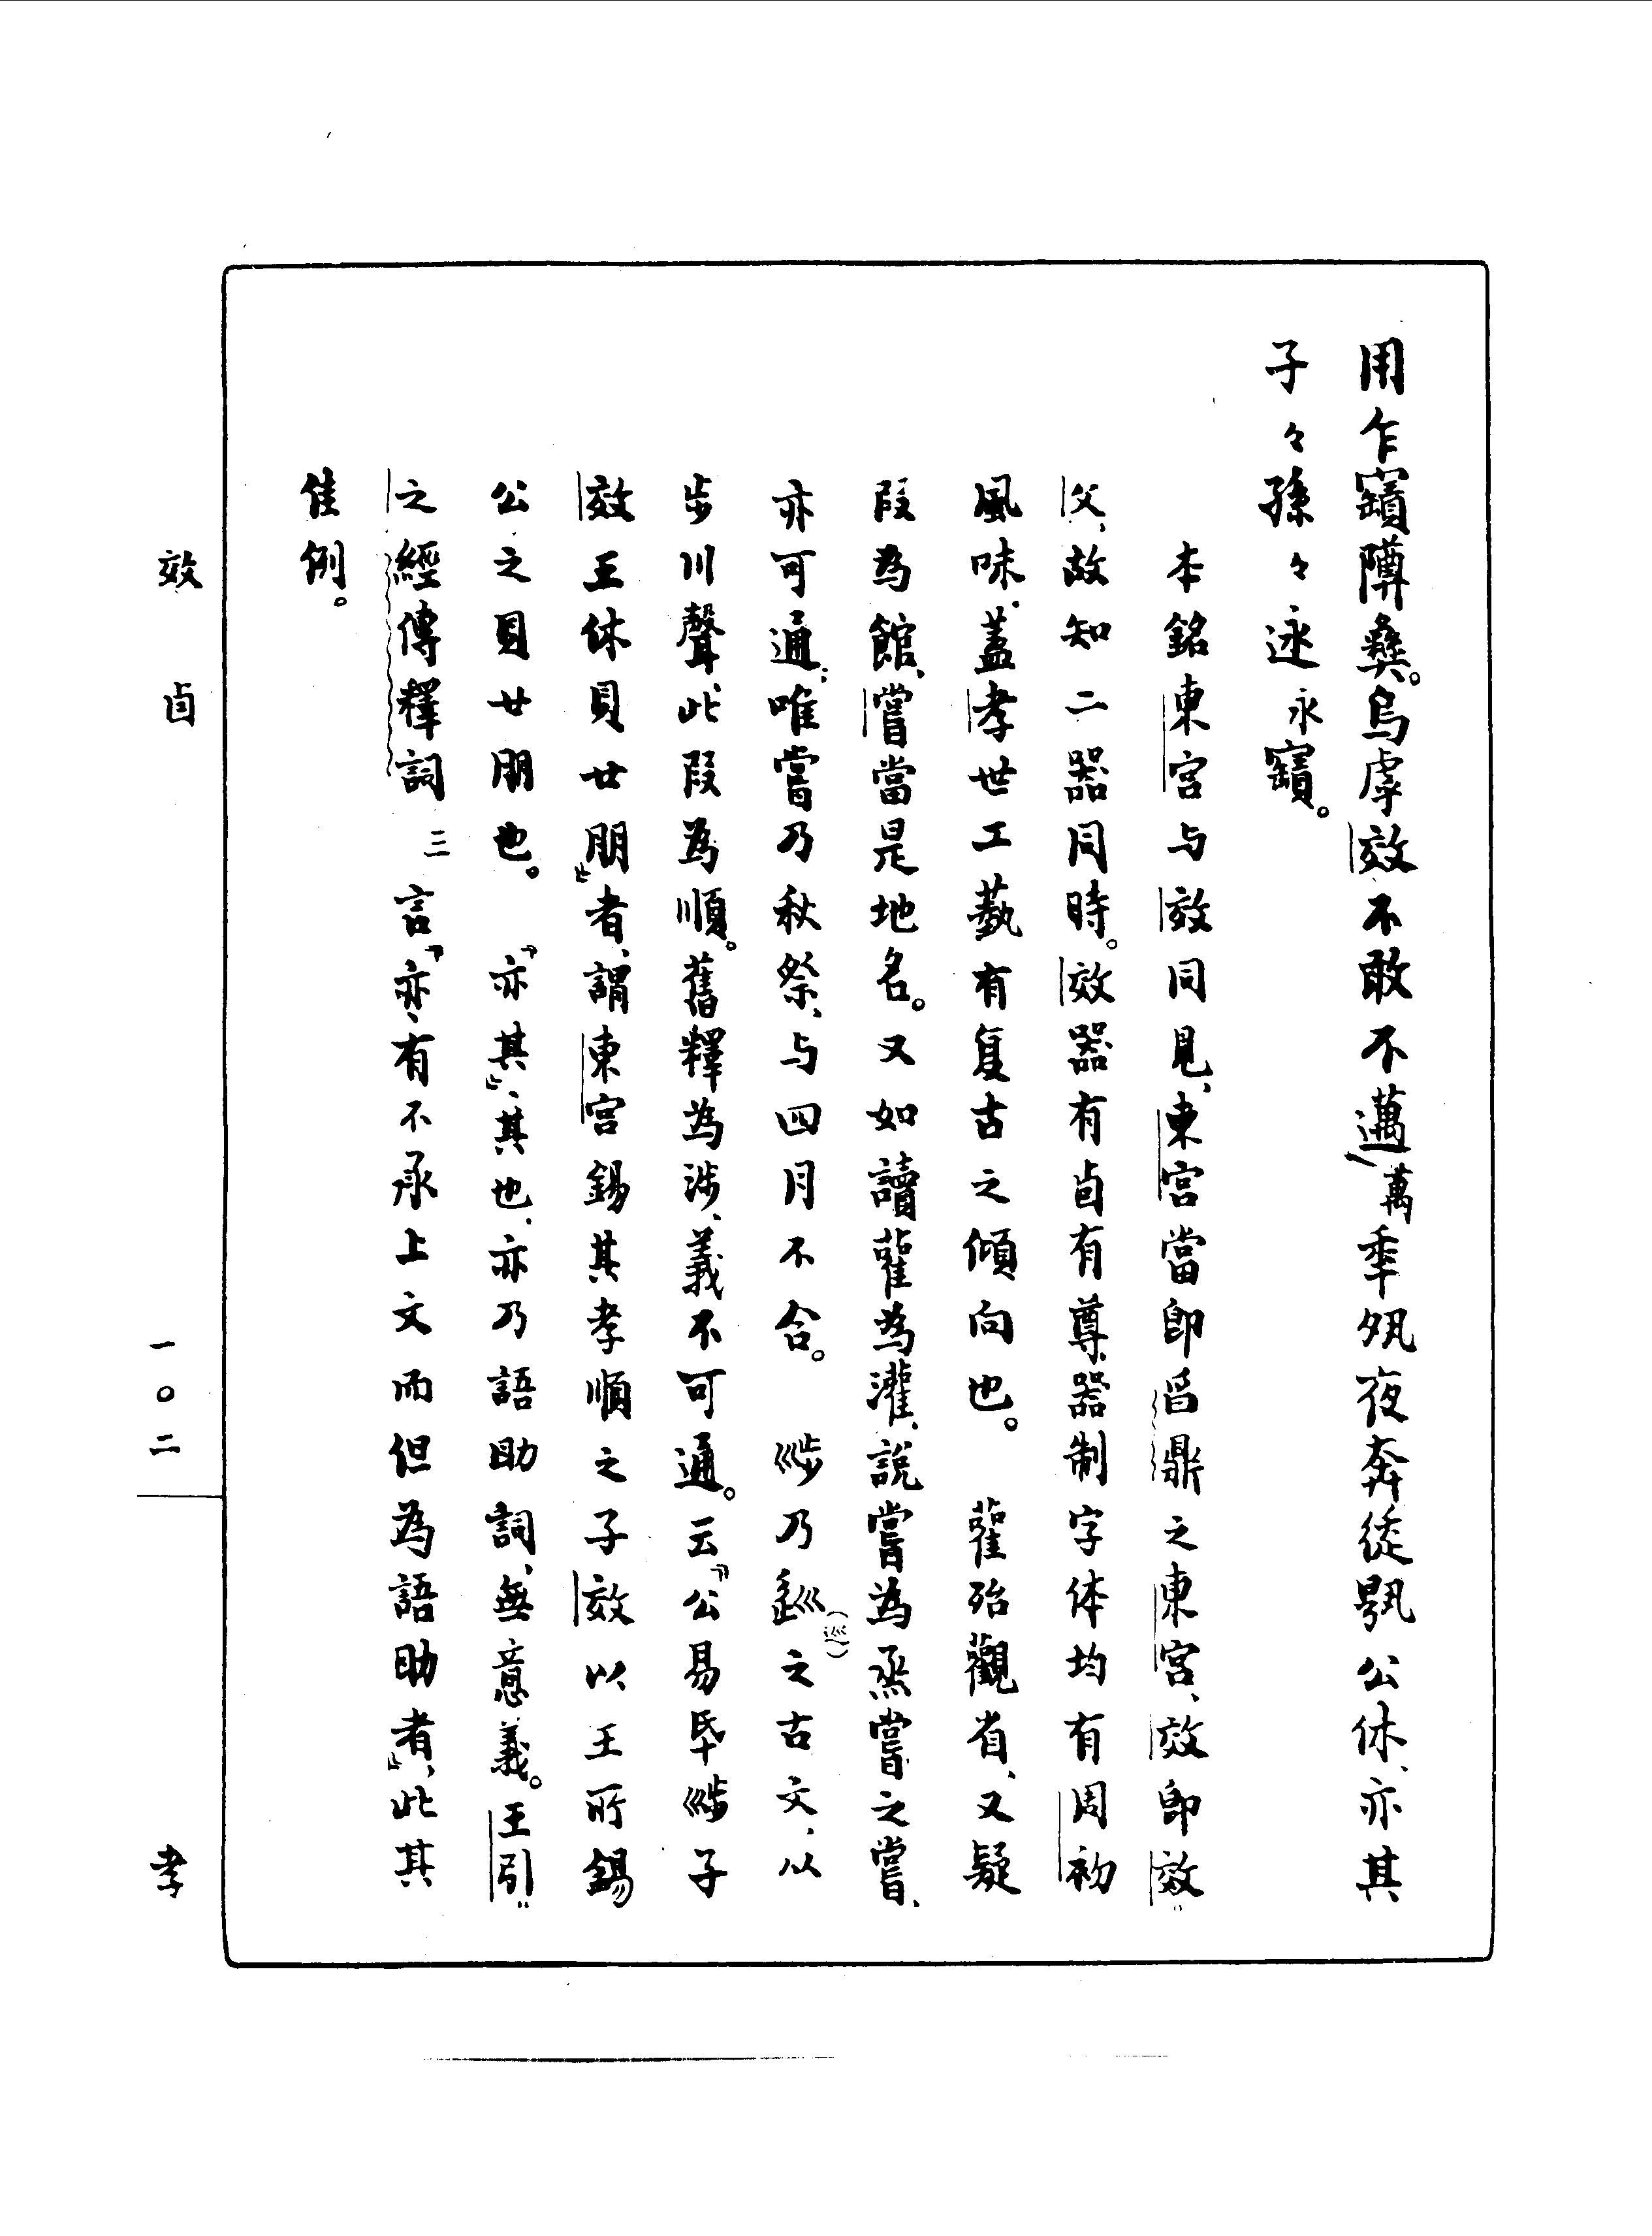 用乍寶障彝。烏虖效不敢不邁萬年夙夜奔徒䫉公休、亦其
子々孫々迷永寶。
本銘東宮与效同見、東宮當即舀鼎之東宮、效即效
父、故知二器同時。效器有卣有尊、器制字体均有周初
風味、蓋孝世工藝有复古之傾向也。　雚殆觀省、又疑
段為館、嘗當是地名。又如讀雚為灌、說嘗為烝嘗之嘗、
亦可通；唯嘗乃秋祭、与四月不合。　乃（巡）之古文、以
步川聲、此段為順。舊釋為涉、義不可通。云『公易㕜子
效王休貝廿朋』者、謂東宮錫其孝順之子效以王所錫
公之貝廿朋也。　『亦其』、其也、亦乃語助詞、無意義。王引
之經傳釋詞三言『亦、有不承上文而但為語助者』、此其
佳例。
效卣
一〇二
孝